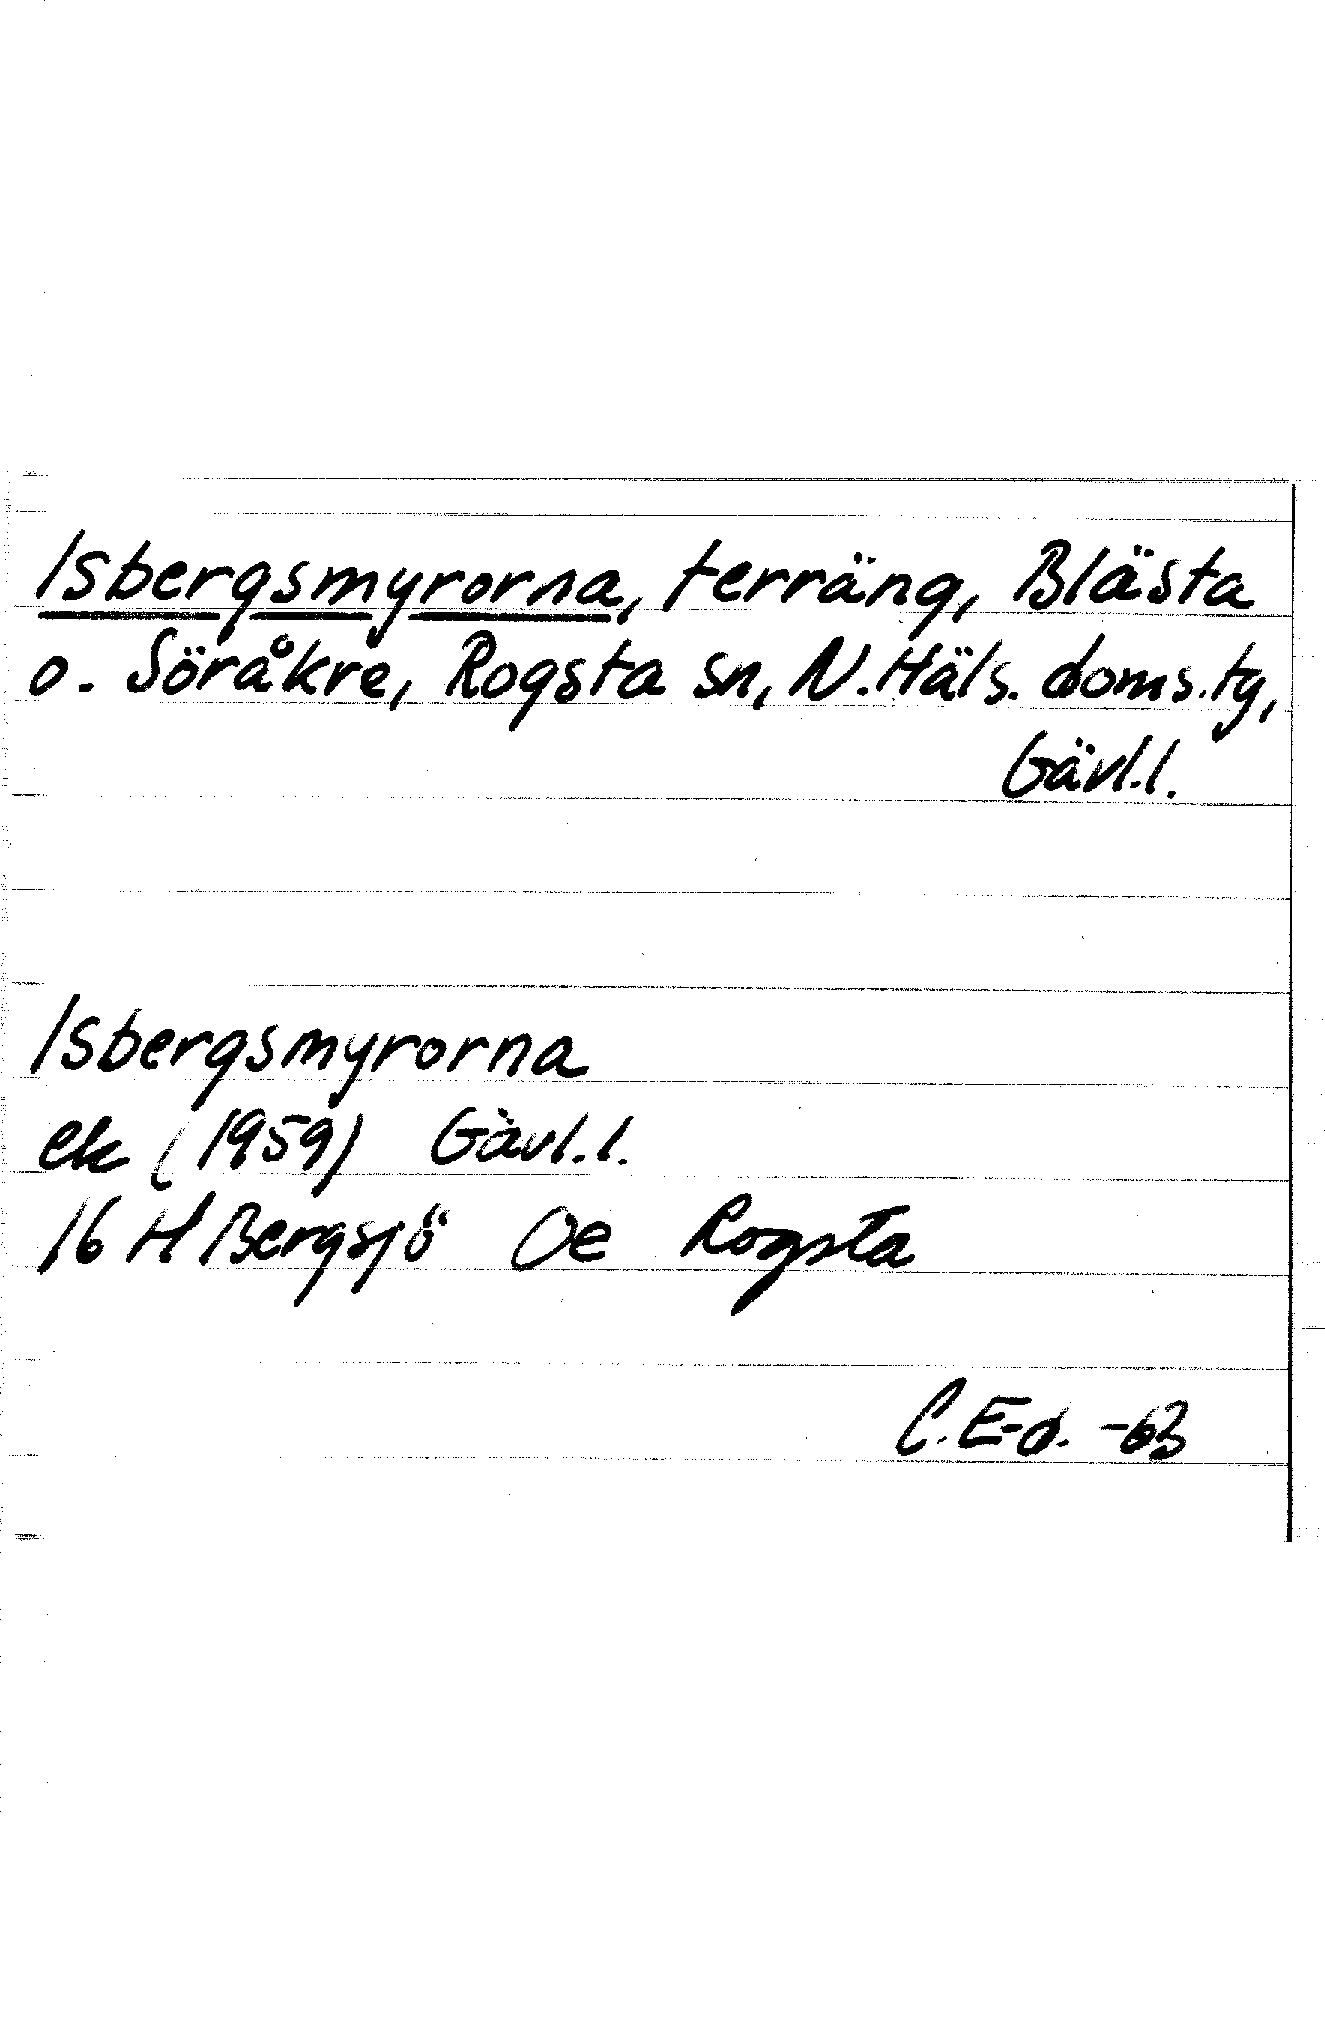 Isbergsmyrorna, terräng, Blästa
o. Söråkre, Rogsta sn, N. Häls. doms. tg,
Gävl. l.
Isbergsmyrorna
ek (1959) Gävl. l.
16 H Bergsjö Oe Rogsta
C. E-d. -63